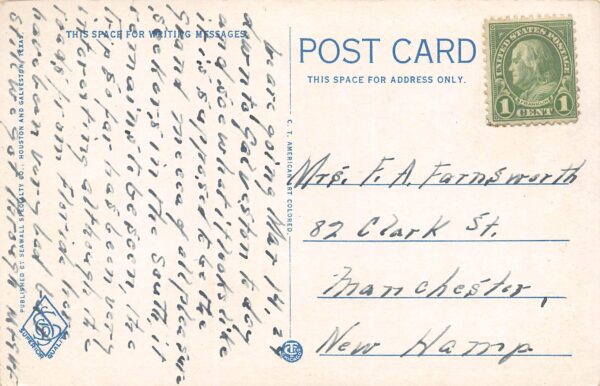 THIS SPACE FOR WRITING MESSAGES
going Mar 14, 29
down to Galveston to
and see what it looks like
it is supposed to be the
Grand mecca of all pleasure
seekers in the South it
remains to be seen,
trip so far has been very
interesting although the
roads from Florida here
have been very bad
Still we got through
PUBLISHED BY SEAWALL SPECIALTY CO., HOUSTON AND GALVESTON, TEXAS.
SUPERIOR QUALITY
C. T. AMERICAN ART COLORED
POST CARD
THIS SPACE FOR ADDRESS ONLY.
UNITED STATES POSTAGE
FRANKLIN
1 CENT 1
Mrs. F. A. Farnsworth
82 Clark St.
Manchester,
New Hamp